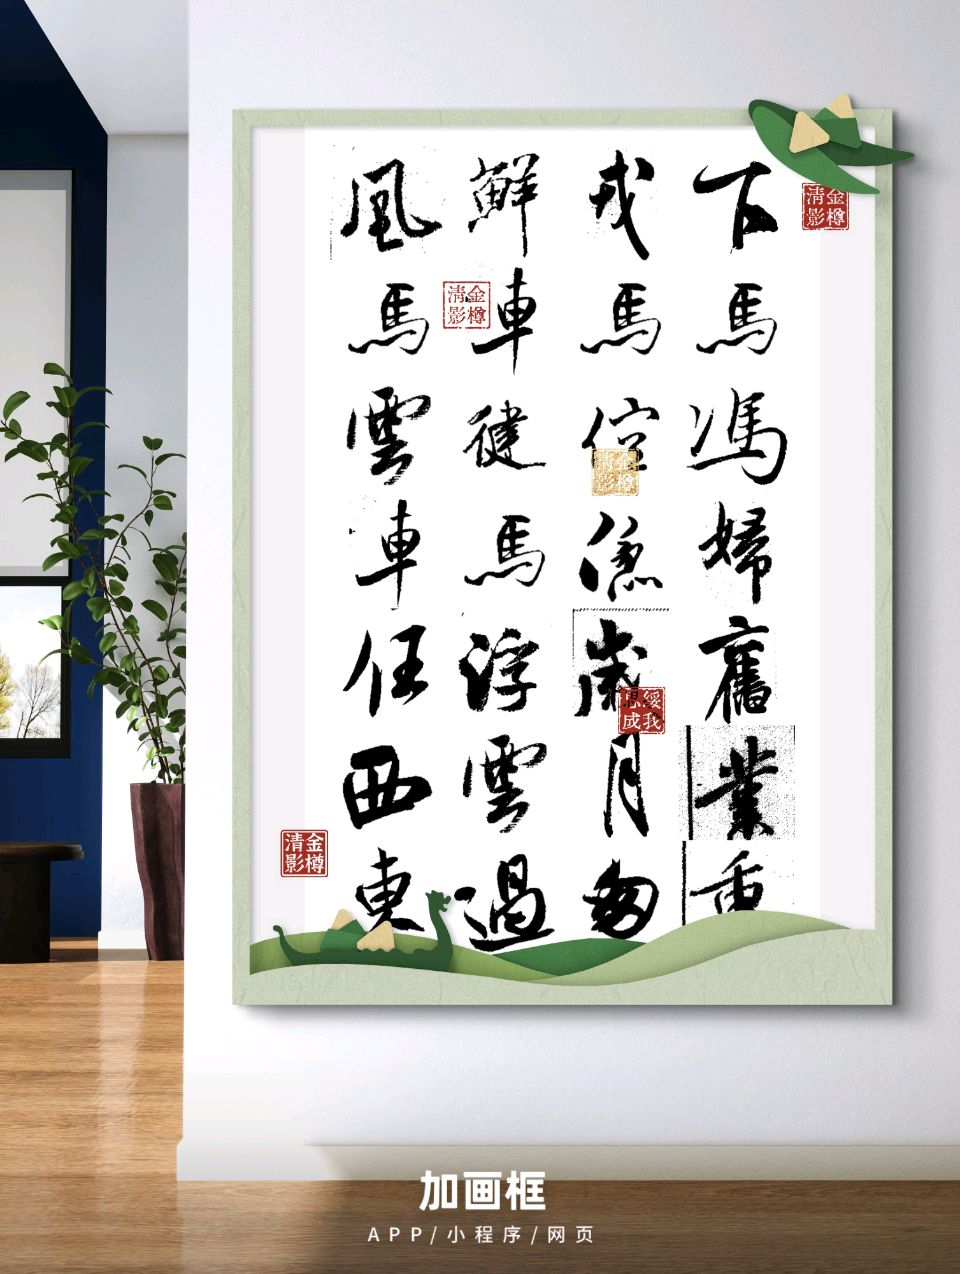 下馬馮婦舊業重
戎馬倥傯歲月匆
鮮車健馬浮雲過
風馬雲車任西東
金樽清影
金樽清影
金樽清影
綏我思成
金樽清影
加画框
APP/小程序/网页